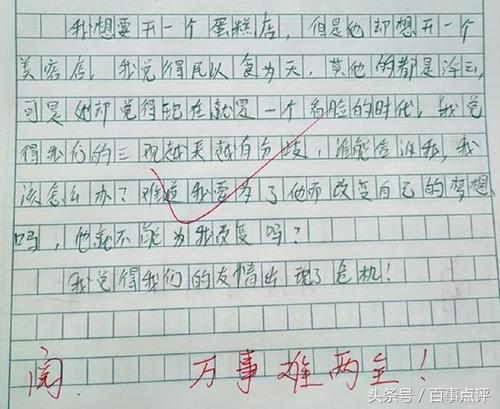 我想要开一个蛋糕店，但是他却想开一个
美容店，我觉得民以食为天，其他的都是浮云，
可是她却觉得现在就是一个看脸的时代，我觉
得我们的三观越来越有分歧，谁能告诉我，我
该怎么办？难道我要为了他而改变自己的梦想
吗，他就不能为我改变吗？
我觉得我们的友情出现了危机！
阅 万事难两全！
头条号/百事点评